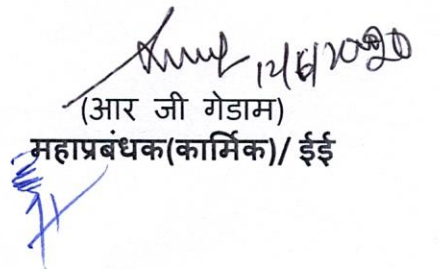 12/6/2020
(आर जी गेडाम)
महाप्रबंधक(कार्मिक)/ ईई